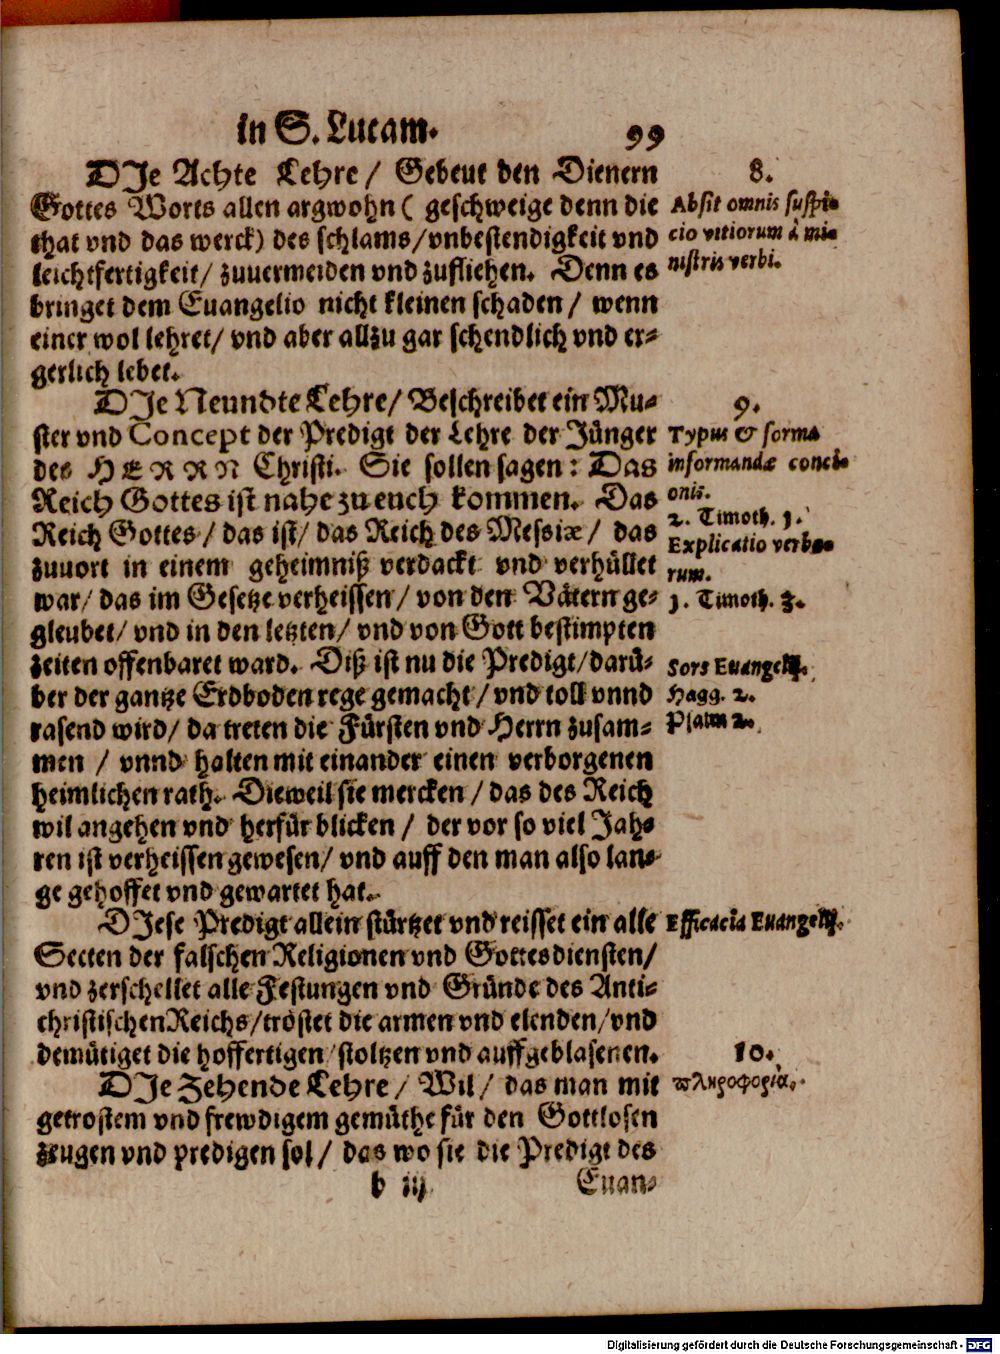 in S. Lucam. 99
DIe Achte Lehre / Gebeut den Dienern
Gottes Worts allen argwohn ( geschweige denn die
that vnd das werck) des schlams/vnbestendigkeit vnd
leichtfertigkeit/ zuuermeiden vnd zufliehen. Denn es
bringet dem Euangelio nicht kleinen schaden / wenn
einer wol lehret/ vnd aber allzu gar schendlich vnd er-
gerlich lebet.
8.
Absit omnis suspi-
cio vitiorum à mi-
nistris verbi.
DIe Neundte Lehre/ Beschreibet ein Mu-
ster vnd Concept der Predigt der Lehre der Jünger
des HERRN Christi. Sie sollen sagen: Das
Reich Gottes ist nahe zu euch kommen. Das
Reich Gottes / das ist/ das Reich des Messiæ / das
zuuort in einem geheimniß verdackt vnd verhüllet
war/ das im Gesetze verheissen / von den Vätern ge-
gleubet/ vnd in den letzten/ vnd von Gott bestimpten
zeiten offenbaret ward. Diß ist nu die Predigt/darü-
ber der gantze Erdboden rege gemacht / vnd toll vnnd
rasend wird/ da treten die Fürsten vnd Herrn zusam-
men / vnnd halten mit einander einen verborgenen
heimlichen rath. Dieweil sie mercken / das des Reich
wil angehen vnd herfür blicken / der vor so viel Jah-
ren ist verheissen gewesen/ vnd auff den man also lan-
ge gehoffet vnd gewartet hat.
9.
Typus & forma
informandæ conci-
onis.
2. Timoth. 1.
Explicatio verbo-
rum.
1. Timoth. 3.
Sors Euangelij.
Hagg. 2.
Psalm 2.
DIese Predigt allein stürtzet vnd reisset ein alle
Secten der falschen Religionen vnd Gottesdiensten/
vnd zerschellet alle Festungen vnd Gründe des Anti-
christischen Reichs/tröstet die armen vnd elenden/vnd
demütiget die hoffertigen/stoltzen vnd auffgeblasenen.
Efficacia Euangelij.
DIe Zehende Lehre / Wil / das man mit
getrostem vnd frewdigem gemüthe für den Gottlosen
zeugen vnd predigen sol / das wo sie die Predigt des
10.
πληροφορία.
b iij Euan-
Digitalisierung gefördert durch die Deutsche Forschungsgemeinschaft - DFG